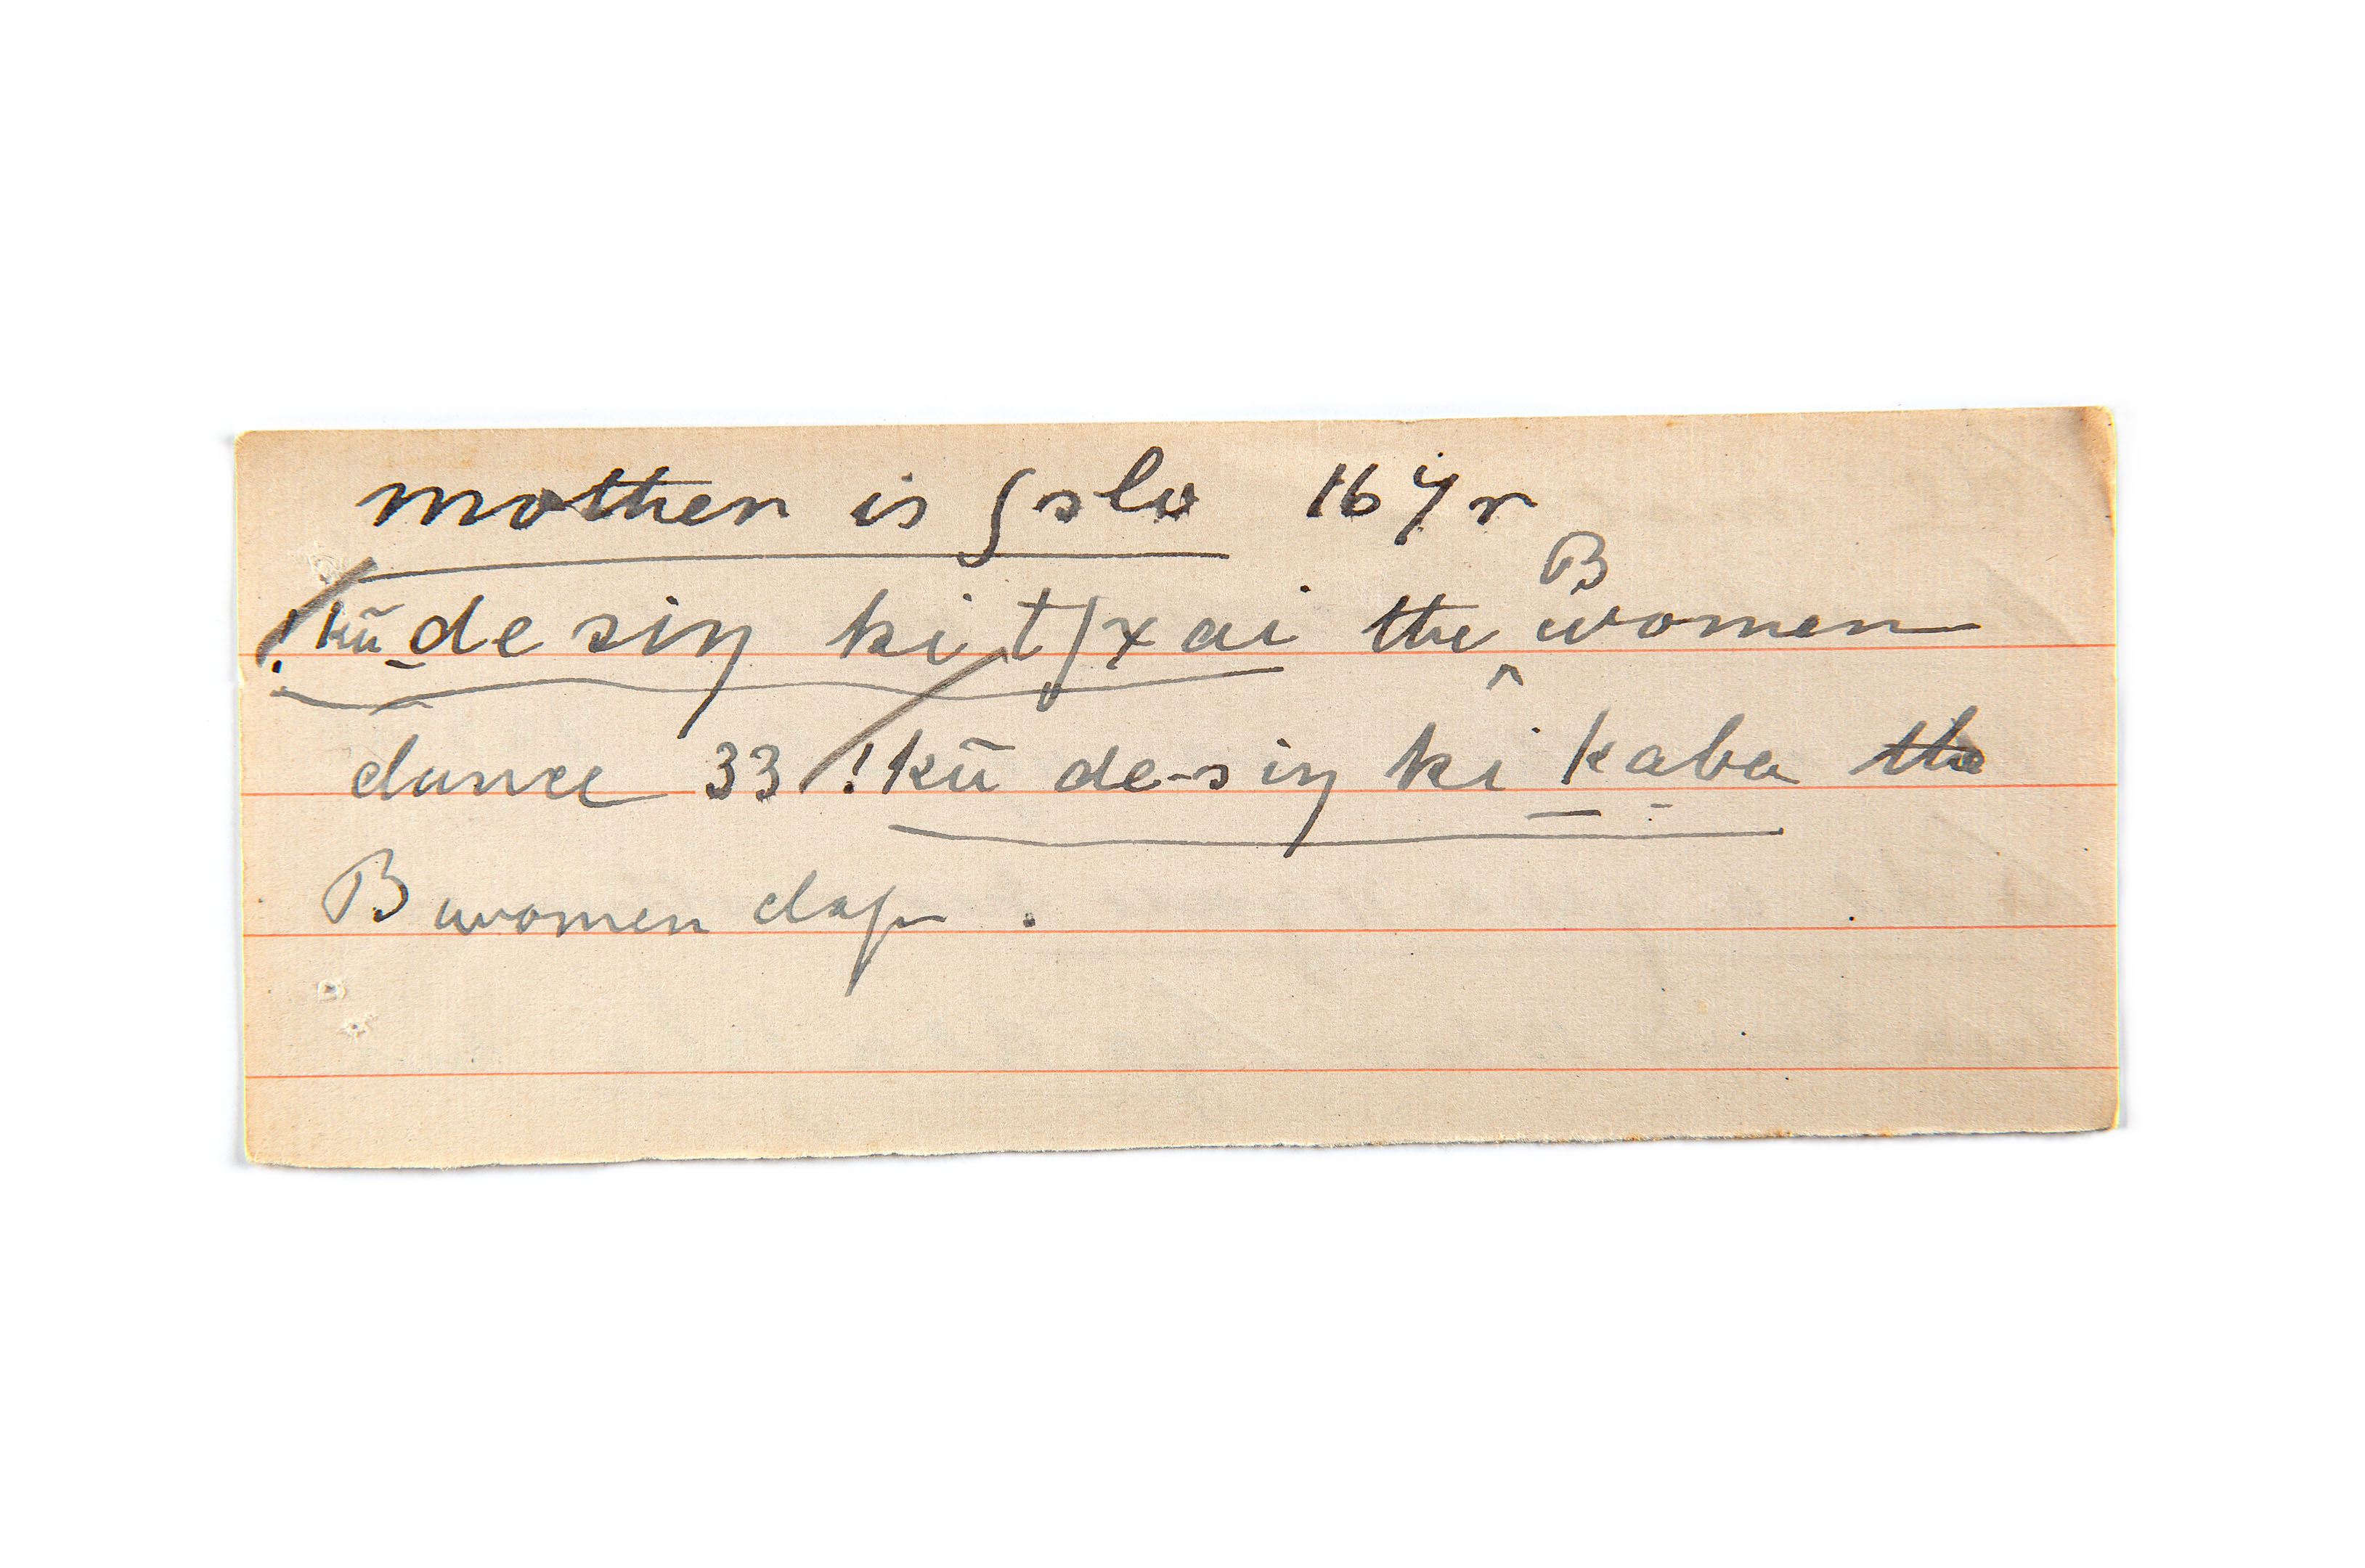 mother is ʃslo 164r
!kũ de siŋ ki t/xai the B women
dance 33 !kũ de-siŋ ki kaba the
B women clap .